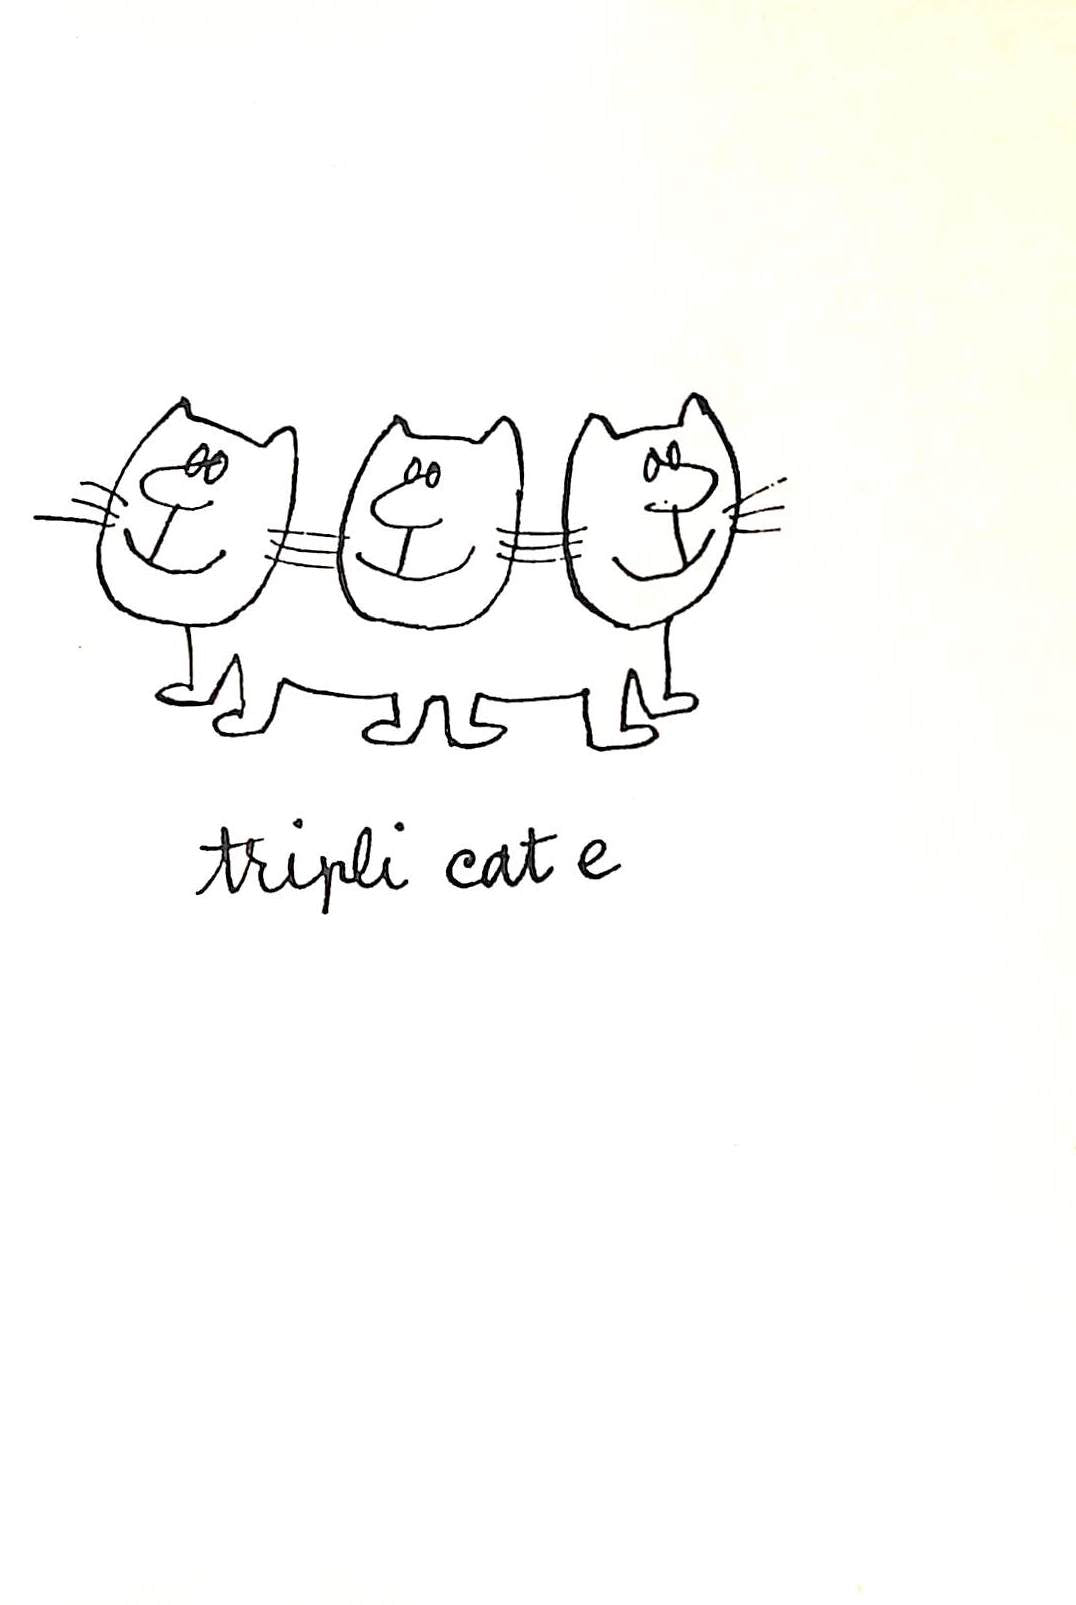 tripli cat e